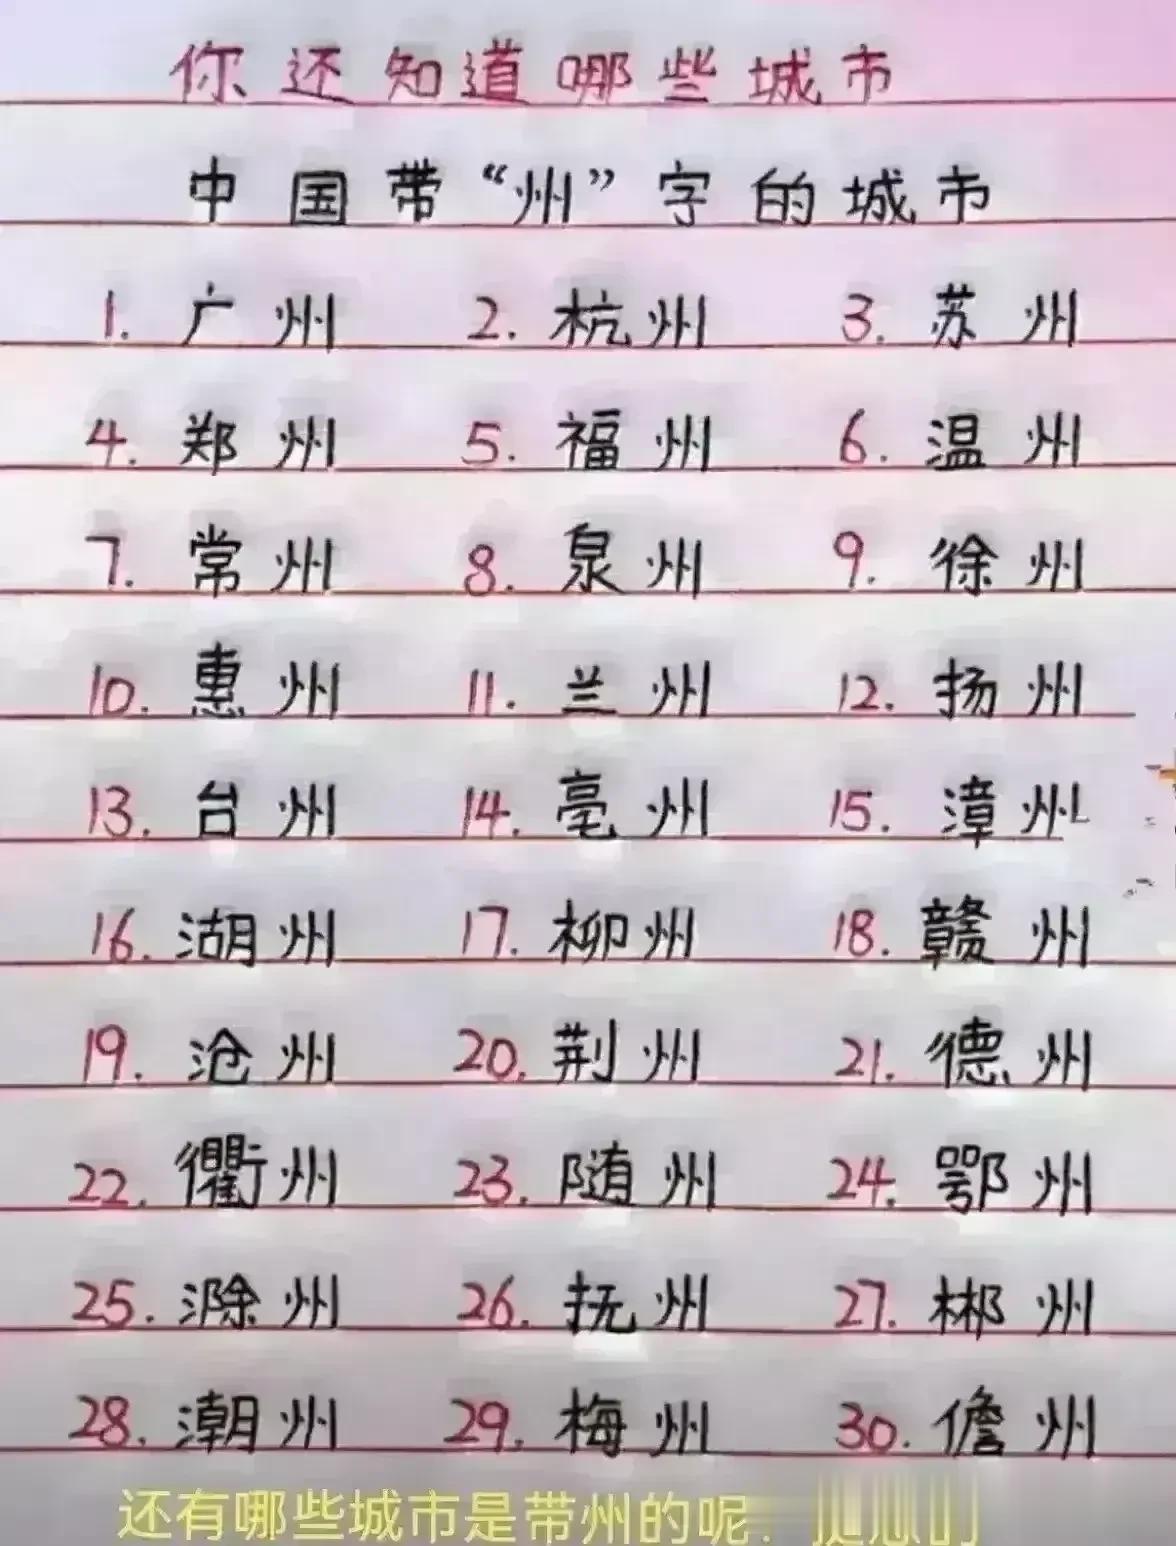 你还知道哪些城市
中国带“州”字的城市
1. 广州 2. 杭州 3. 苏州
4. 郑州 5. 福州 6. 温州
7. 常州 8. 泉州 9. 徐州
10. 惠州 11. 兰州 12. 扬州
13. 台州 14. 亳州 15. 漳州
16. 湖州 17. 柳州 18. 赣州
19. 沧州 20. 荆州 21. 德州
22. 衢州 23. 随州 24. 鄂州
25. 滁州 26. 抚州 27. 郴州
28. 潮州 29. 梅州 30. 儋州
还有哪些城市是带州的呢